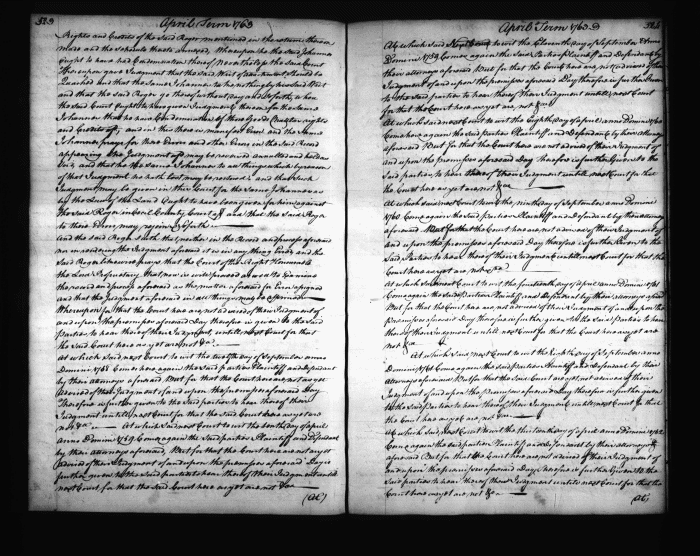 523
April Term 1763
Rights and Credits of the said Roger mentioned in the return thereon
made and the Schedule thereto annexed Whereupon he the said Johannes
Ought to have had Condemnation thereof Nevertheless the said Court
thereupon gave Judgment that the said Writ of Attachment should be
Quashed and that the same Johannes take nothing by his said Writ
and that the said Roger go thereof without day &c Whereas
the said Court Ought to have given Judgment thereon for the same
Johannes that he have Condemnation of those Goods Chattles rights
and Credits &c, and in this there is manifest Error and the same
Johannes prays for those Errors and other Errors in the said Record
appearing the Judgment aff may be reversed annulled and held as
void and that he the same Johannes to all things which by occasion
of that Judgment he hath lost may be restored and that such
Judgment may be given in this Court for the same Johannes as
by the Law of the Land Ought to have been given for him against
the said Roger in Cecil County Court &c and that the said Roger
to these Errors may rejoin &c
And the said Roger saith that neither in the Record and process aforesaid
nor in rendering the Judgment aforesaid is in any thing Erred and the
said Roger likewise prays that the Court of the Right Honourable
the Lord Proprietary that now is will proceed as well to Examine
the record and process aforesaid as the matter aforesaid for Error assigned
and that the Judgment aforesaid in all things may be affirmed
Whereupon for that the Court here are not advised of their Judgment of
and upon the premises aforesaid Day therefore is given to the said
parties to hear thereof their Judgment until next Court for that
the said Court here as yet are not &c
At which said next Court to wit the day of September anno
Domini 1758 Comes here again the said parties Plaintiff and Defendant
by their Attorneys aforesaid But for that the Court here are not as yet
advised of their Judgment of and upon the premises aforesaid Day
therefore is further given to the said parties to hear thereof their
Judgment until next Court for that the said Court here as yet are
not &c At which said next Court to wit the tenth day of april
anno Domini 1759 Come again the said parties Plaintiff and Defendant
by their Attorneys aforesaid, But for that the Court here are not as yet
advised of their Judgment of and upon the premises aforesaid Day is
further given to the said parties to hear thereof their Judgment until
next Court for that the said Court here as yet are not &c
(At)
524
April Term 1763
At which said next Court to wit the Eleventh day of September Anno
Domini 1759 Comes again the said parties Plaintiff and Defendant by
their attorneys aforesaid But for that the Court here are not advised of their
Judgment of and upon the premises aforesaid Day therefore is further Given
to the said parties to hear thereof their Judgment until next Court
for that the Court here as yet are not &c
At which said next Court to wit the Eighth day of april anno Domini 1760
Come here again the said parties Plaintiff and Defendant by their Attorneys
aforesaid But for that the Court here are not advised of their Judgment of
and upon the premises aforesaid Day therefore is further Given to the
said parties to hear thereof their Judgment until next Court for that
the Court here as yet are not &c
At which said next Court to wit the ninth day of September anno Domini
1760 Come again the said parties Plaintiff and Defendant by their attorneys
aforesaid But for that the Court here are not advised of their Judgment of
and upon the premises aforesaid Day therefore is further Given to the
said Parties to hear thereof their Judgment until next Court for that the
Court here as yet are not &c
At which said next Court to wit the fourteenth day of april anno Domini 1761
Come again the said parties Plaintiff and Defendant by their attorneys aforesaid
But for that the Court here are not advised of their Judgment of and upon the
premises aforesaid Day therefore is further given to the said Parties to hear
thereof their Judgment until next Court for that the Court here as yet are
not &c
At which said next Court to wit the day of September anno
Domini 1761 Come again the said parties Plaintiff and Defendant by their
Attorneys aforesaid But for that the said Court here are not advised of their
Judgment of and upon the premises aforesaid Day therefore is further given
to the said Parties to hear thereof their Judgment until next Court for that
the Court here as yet are not &c
At which said next Court to wit the thirteenth day of april anno Domini 1762
Come again the said parties Plaintiff and Defendant by their attorneys
aforesaid But for that the Court here are not advised of their Judgment of
and upon the premises aforesaid Day therefore is further Given to the
said parties to hear thereof their Judgment until next Court for that the
Court here as yet are not &c
(At)